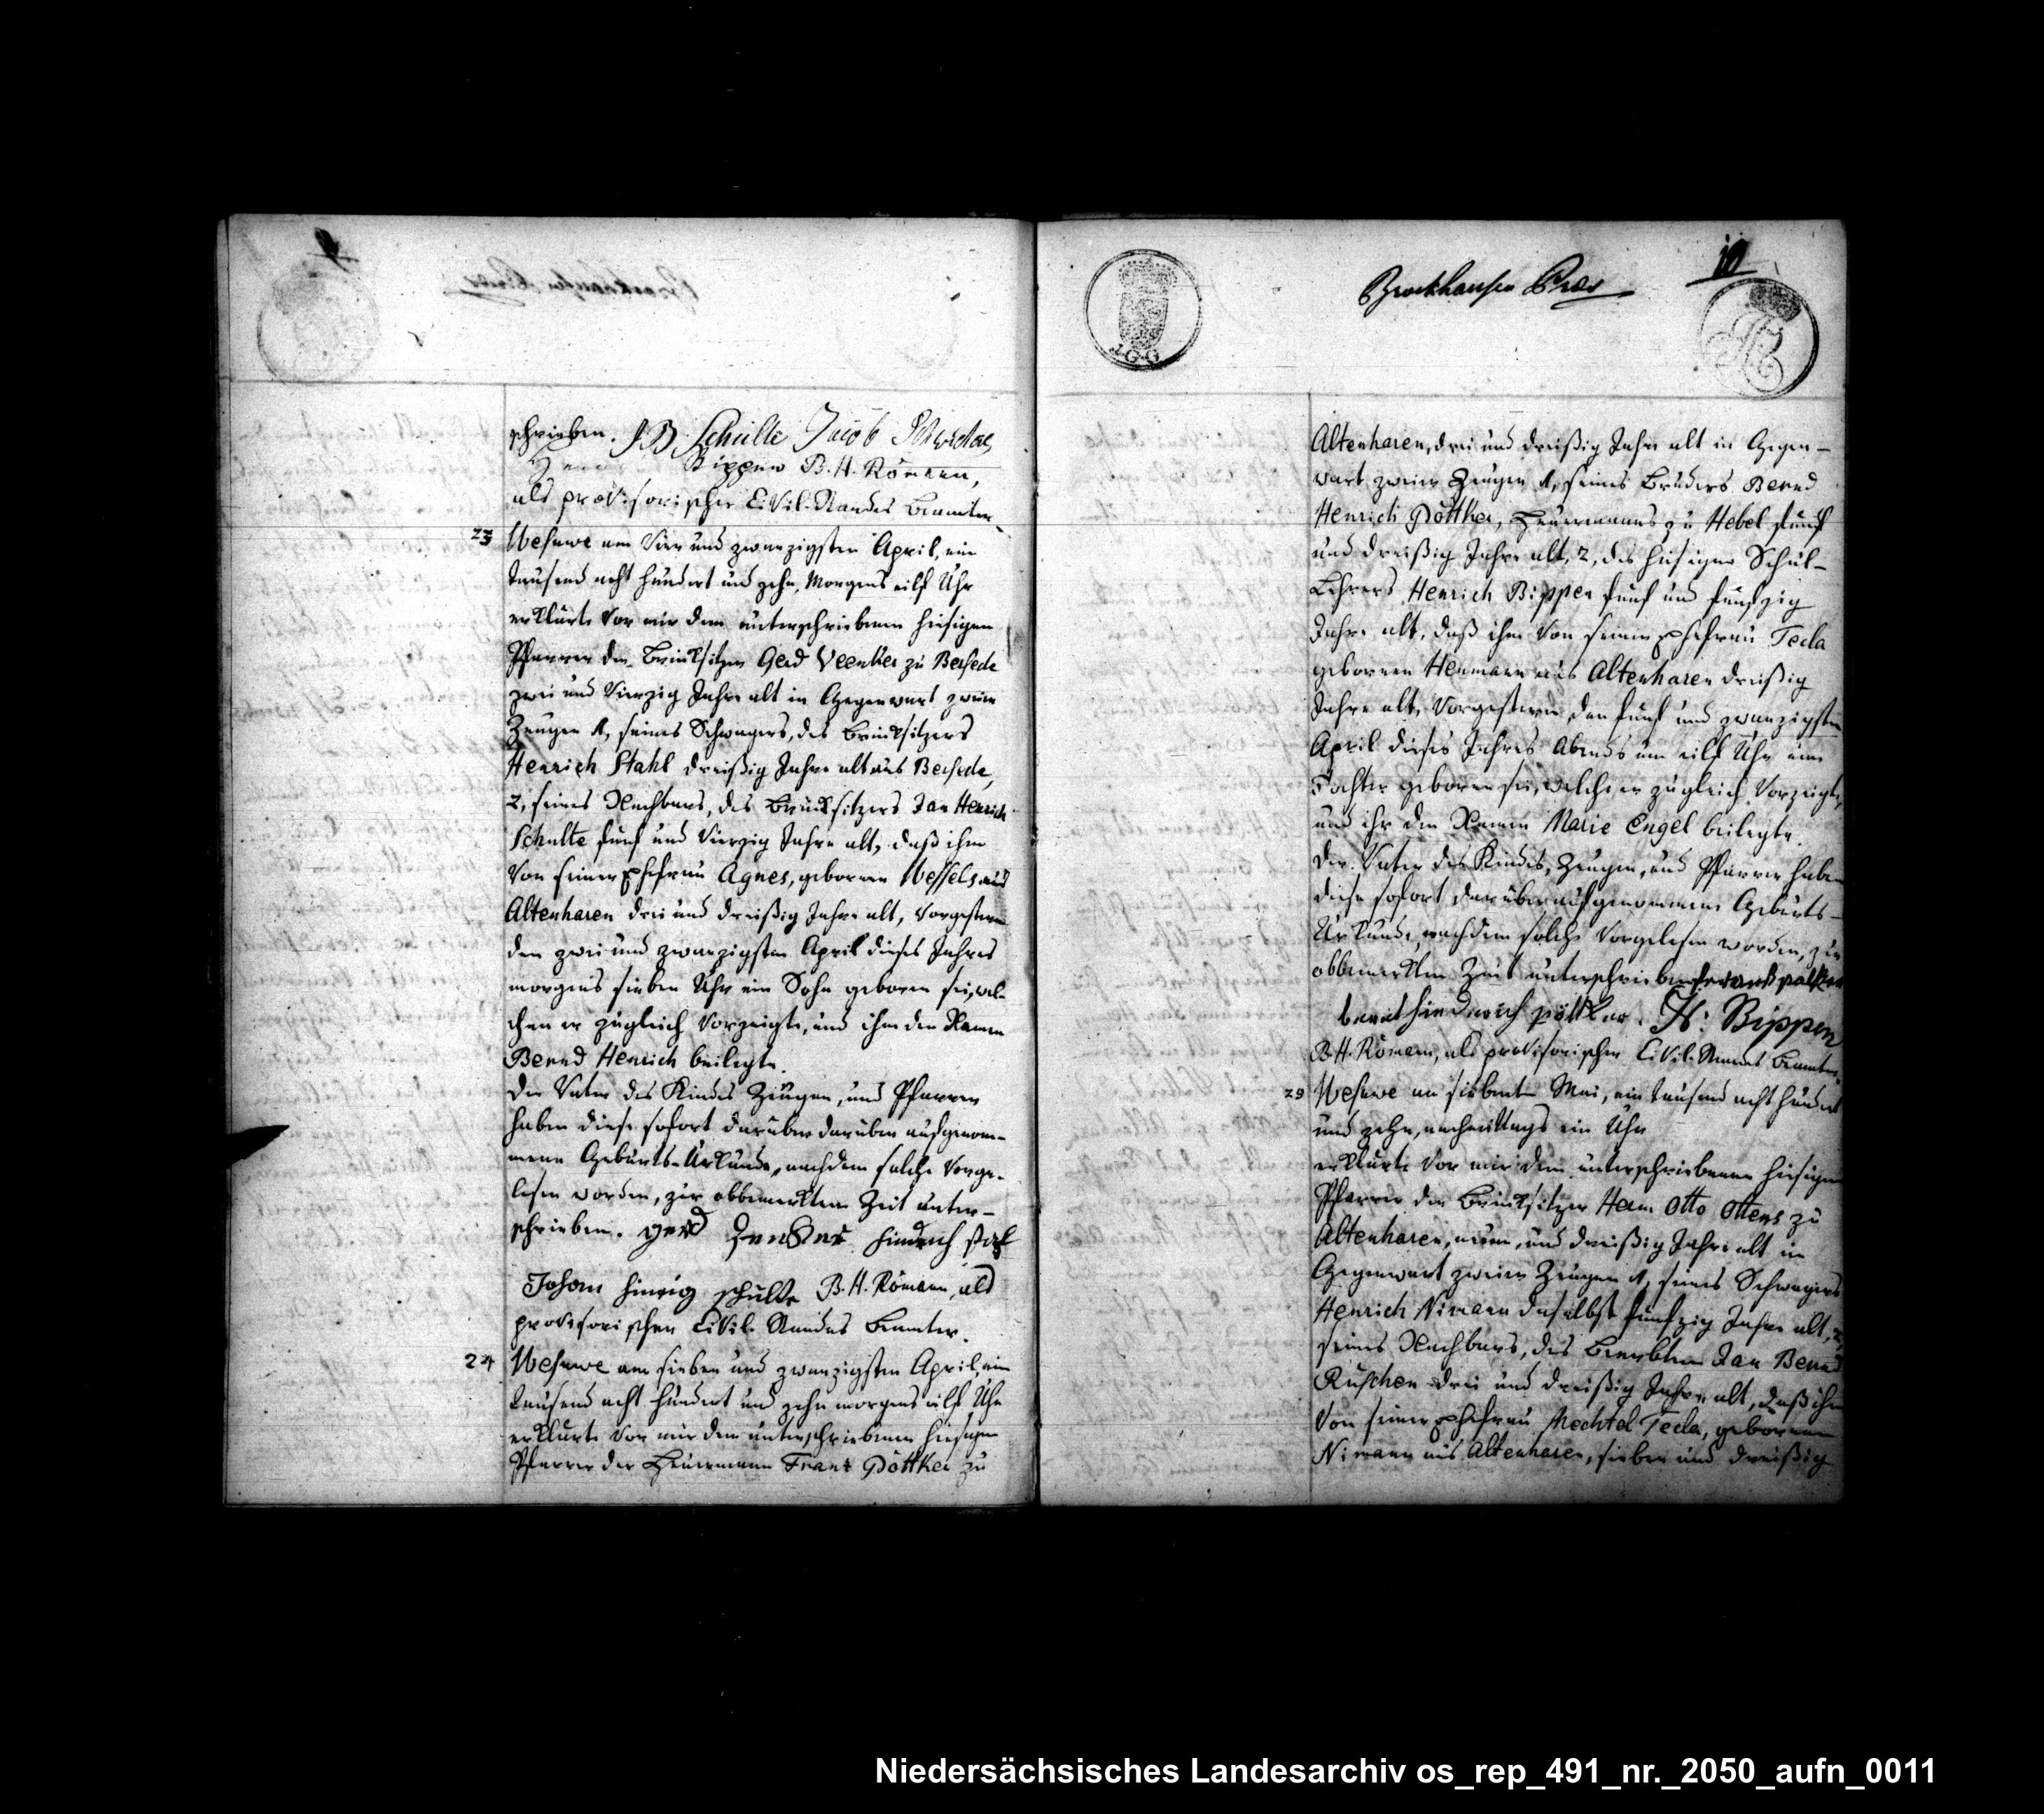 schrieben. J B Schulte Jacob
Bippen B. H. Römann,
als provisorischer Civil-Standes Beamter
23 Wesuwe am vier und zwanzigsten April, ein
tausend acht hundert und zehn, Morgens eilf Uhr
erklärte vor mir dem unterschriebenen hiesigen
Pfarrer der Brinksitzer Gerd Veenker zu Bersede
zwei und vierzig Jahre alt in Gegenwart zweier
Zeugen 1, seines Schwagers, des Brinksitzers
Henrich Stahl dreißig Jahre alt aus Bersede,
2, seines Nachbars, des Brinksitzers Jan Henrich
Schulte fünf und vierzig Jahre alt, daß ihm
von seiner Ehefrau Agnes, geboren Wessels aus
Altenharen drei und dreißig Jahre alt, vorgestern
den zwei und zwanzigsten April dieses Jahres
morgens sieben Uhr ein Sohn geboren sei, wel-
chen er zugleich vorzeigte, und ihm den Namen
Bernd Henrich beilegte.
Der Vater des Kindes Zeugen, und Pfarrer
haben diese sofort darüber darüber aufgenom-
mene Geburts-Urkunde, nachdem solche vorge-
lesen worden, zur obbemerkten Zeit unter-
schrieben. gerd hindrich stal
Johan hinrig schulte B. H. Römann, als
provisorischer Civil-Standes Beamter.
24 Wesuwe am sieben und zwanzigsten April, ein
tausend acht hundert und zehn morgens eilf Uhr
erklärte vor mir dem unterschriebenen hiesigen
Pfarrer der Heuermann Franz Pöttker zu
Brockhausen
10
1 GG
Altenharen, drei und dreißig Jahre alt in Gegen-
wart zweier Zeugen 1, seines Bruders Bernd
Henrich Pöttker, Heuermanns zu Hebel fünf
und dreißig Jahre alt, 2, des hiesigen Schul-
Lehrers Henrich Bippen fünf und fünfzig
Jahre alt, daß ihm von seiner Ehefrau Tecla
gebornen Henmann aus Altenharen dreißig
Jahre alt, vorgestern den fünf und zwanzigsten
April dieses Jahres Abends um eilf Uhr eine
Tochter geboren sei, welche er zugleich vorzeigte,
und ihr den Namen Marie Engel beilegte.
Der Vater des Kindes, Zeugen, und Pfarrer haben
diese sofort darüber aufgenommene Geburts-
Urkunde, nachdem solche vorgelesen worden, zur
obbemerkten Zeit unterschrieben
berent hinderich pöttker. H: Bippen
B. H. Römann, als provisorischer Civil-Standes Beamter.
29 Wesuwe am siebenten Mai, ein tausend acht hundert
und zehn, nachmittags ein Uhr
erklärte vor mir dem unterschriebenen hiesigen
Pfarrer der Brinksitzer Herm Otto Ottens zu
Altenharen, neun, und dreißig Jahre alt in
Gegenwart zweier Zeugen 1, seines Schwagers
Henrich Nimann daselbst fünfzig Jahre alt, 2,
seines Nachbars, des Beerbten Jan Bernd
Ruschen drei und dreißig Jahre alt, daß ihm
von seiner Ehefrau Mechtel Tecla, gebornen
Nimann aus Altenharen, sieben und dreißig
Niedersächsisches Landesarchiv os_rep_491_nr._2050_aufn_0011